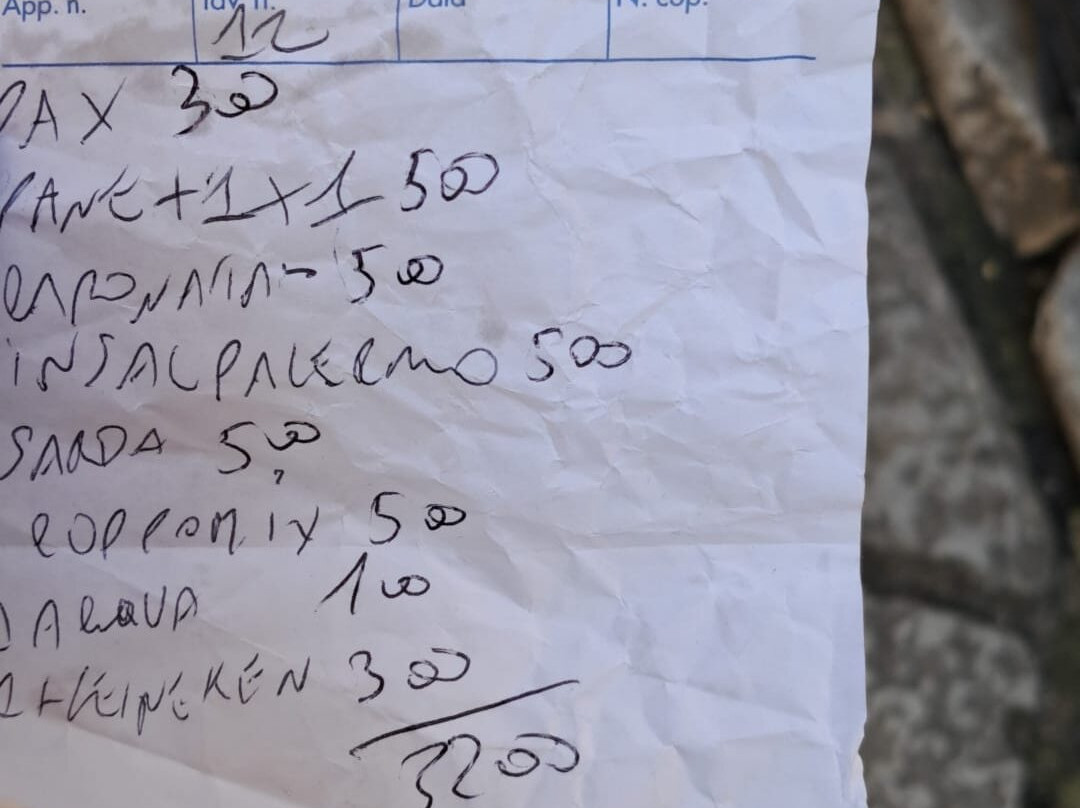 App. n. Tav. n. Data N. cop.
12
PAX 300
PANE +1X1 500
CAPONATA - 500
INSALPALERMO 500
SARDA 5,00
COPPOMIX 500
1 ACQUA 100
1 HEINEKEN 300
3200